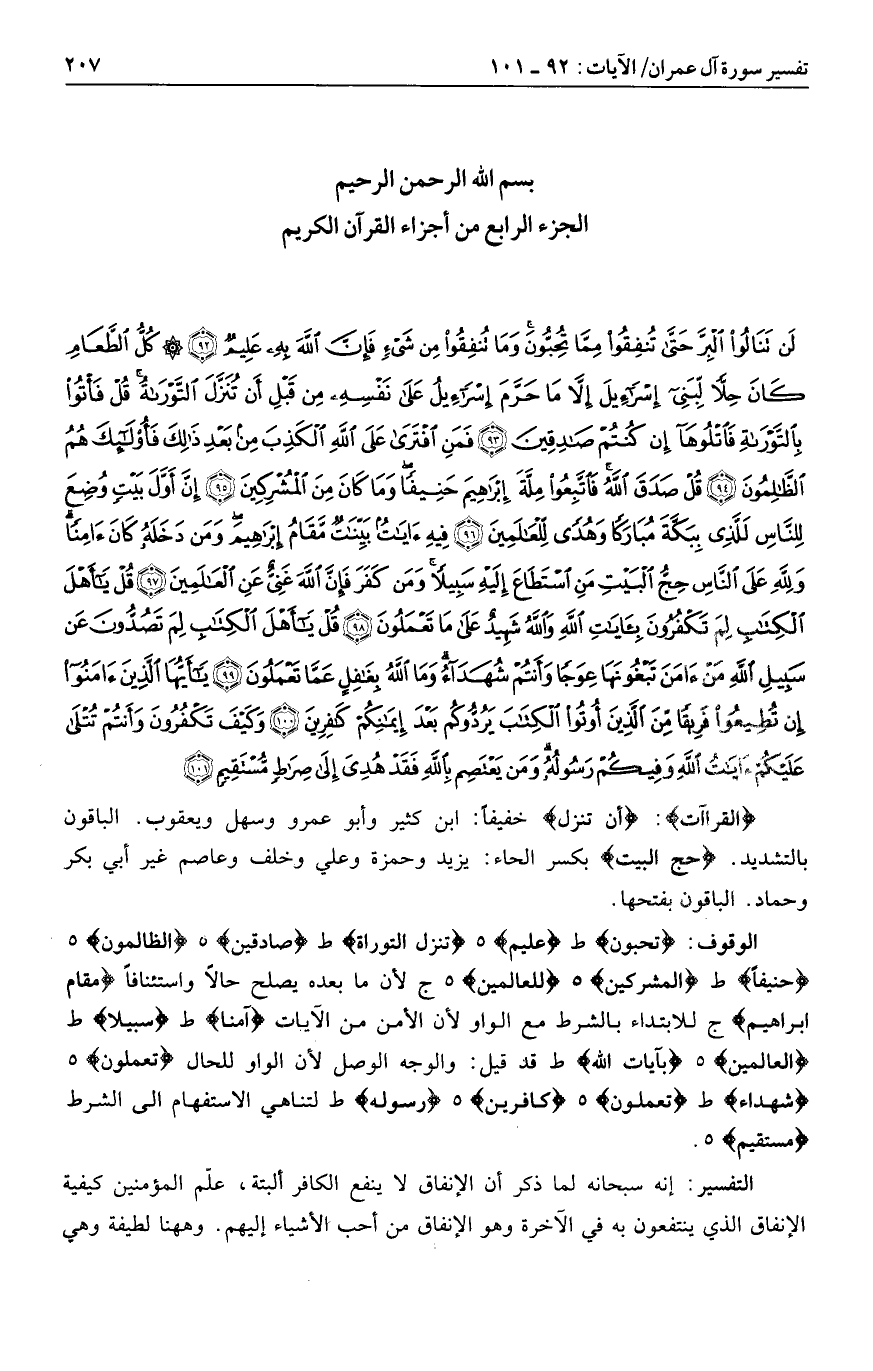 تفسير سورة آل عمران/ الآيات: ٩٢ ـ ١٠١ ٢٠٧
بسم الله الرحمن الرحيم
الجزء الرابع من أجزاء القرآن الكريم
لَن تَنَالُوا۟ ٱلْبِرَّ حَتَّىٰ تُنفِقُوا۟ مِمَّا تُحِبُّونَ ۚ وَمَا تُنفِقُوا۟ مِن شَىْءٍ فَإِنَّ ٱللَّهَ بِهِۦ عَلِيمٌ ﴿٩٢﴾ ۞ كُلُّ ٱلطَّعَامِ
كَانَ حِلًّا لِّبَنِىٓ إِسْرَٰٓءِيلَ إِلَّا مَا حَرَّمَ إِسْرَٰٓءِيلُ عَلَىٰ نَفْسِهِۦ مِن قَبْلِ أَن تُنَزَّلَ ٱلتَّوْرَىٰةُ ۗ قُلْ فَأْتُوا۟
بِٱلتَّوْرَىٰةِ فَٱتْلُوهَآ إِن كُنتُمْ صَٰدِقِينَ ﴿٩٣﴾ فَمَنِ ٱفْتَرَىٰ عَلَى ٱللَّهِ ٱلْكَذِبَ مِنۢ بَعْدِ ذَٰلِكَ فَأُو۟لَٰٓئِكَ هُمُ
ٱلظَّٰلِمُونَ ﴿٩٤﴾ قُلْ صَدَقَ ٱللَّهُ ۗ فَٱتَّبِعُوا۟ مِلَّةَ إِبْرَٰهِيمَ حَنِيفًا ۖ وَمَا كَانَ مِنَ ٱلْمُشْرِكِينَ ﴿٩٥﴾ إِنَّ أَوَّلَ بَيْتٍ وُضِعَ
لِلنَّاسِ لَلَّذِى بِبَكَّةَ مُبَارَكًا وَهُدًى لِّلْعَٰلَمِينَ ﴿٩٦﴾ فِيهِ ءَايَٰتٌۢ بَيِّنَٰتٌ مَّقَامُ إِبْرَٰهِيمَ ۖ وَمَن دَخَلَهُۥ كَانَ ءَامِنًا ۗ
وَلِلَّهِ عَلَى ٱلنَّاسِ حِجُّ ٱلْبَيْتِ مَنِ ٱسْتَطَاعَ إِلَيْهِ سَبِيلًا ۚ وَمَن كَفَرَ فَإِنَّ ٱللَّهَ غَنِىٌّ عَنِ ٱلْعَٰلَمِينَ ﴿٩٧﴾ قُلْ يَٰٓأَهْلَ
ٱلْكِتَٰبِ لِمَ تَكْفُرُونَ بِـَٔايَٰتِ ٱللَّهِ وَٱللَّهُ شَهِيدٌ عَلَىٰ مَا تَعْمَلُونَ ﴿٩٨﴾ قُلْ يَٰٓأَهْلَ ٱلْكِتَٰبِ لِمَ تَصُدُّونَ عَن
سَبِيلِ ٱللَّهِ مَنْ ءَامَنَ تَبْغُونَهَا عِوَجًا وَأَنتُمْ شُهَدَآءُ ۗ وَمَا ٱللَّهُ بِغَٰفِلٍ عَمَّا تَعْمَلُونَ ﴿٩٩﴾ يَٰٓأَيُّهَا ٱلَّذِينَ ءَامَنُوٓا۟
إِن تُطِيعُوا۟ فَرِيقًا مِّنَ ٱلَّذِينَ أُوتُوا۟ ٱلْكِتَٰبَ يَرُدُّوكُم بَعْدَ إِيمَٰنِكُمْ كَٰفِرِينَ ﴿١٠٠﴾ وَكَيْفَ تَكْفُرُونَ وَأَنتُمْ تُتْلَىٰ
عَلَيْكُمْ ءَايَٰتُ ٱللَّهِ وَفِيكُمْ رَسُولُهُۥ ۗ وَمَن يَعْتَصِم بِٱللَّهِ فَقَدْ هُدِىَ إِلَىٰ صِرَٰطٍ مُّسْتَقِيمٍ ﴿١٠١﴾
﴿القراآت﴾: ﴿أن تنزل﴾ خفيفاً: ابن كثير وأبو عمرو وسهل ويعقوب. الباقون
بالتشديد. ﴿حج البيت﴾ بكسر الحاء: يزيد وحمزة وعلي وخلف وعاصم غير أبي بكر
وحماد. الباقون بفتحها.
الوقوف: ﴿تحبون﴾ ط ﴿عليم﴾ ٥ ﴿تنزل التوراة﴾ ط ﴿صادقين﴾ ٥ ﴿الظالمون﴾ ٥
﴿حنيفاً﴾ ط ﴿المشركين﴾ ٥ ﴿للعالمين﴾ ٥ ج لأن ما بعده يصلح حالاً واستئنافاً ﴿مقام
ابراهيم﴾ ج للابتداء بالشرط مع الواو لأن الأمن من الآيات ﴿آمنا﴾ ط ﴿سبيلا﴾ ط
﴿العالمين﴾ ٥ ﴿بآيات الله﴾ ط قد قيل: والوجه الوصل لأن الواو للحال ﴿تعملون﴾ ٥
﴿شهداء﴾ ط ﴿تعملون﴾ ٥ ﴿كافرين﴾ ٥ ﴿رسوله﴾ ط لتناهي الاستفهام الى الشرط
﴿مستقيم﴾ ٥.
التفسير: إنه سبحانه لما ذكر أن الإنفاق لا ينفع الكافر ألبتة، علّم المؤمنين كيفية
الإنفاق الذي ينتفعون به في الآخرة وهو الإنفاق من أحب الأشياء إليهم. وههنا لطيفة وهي